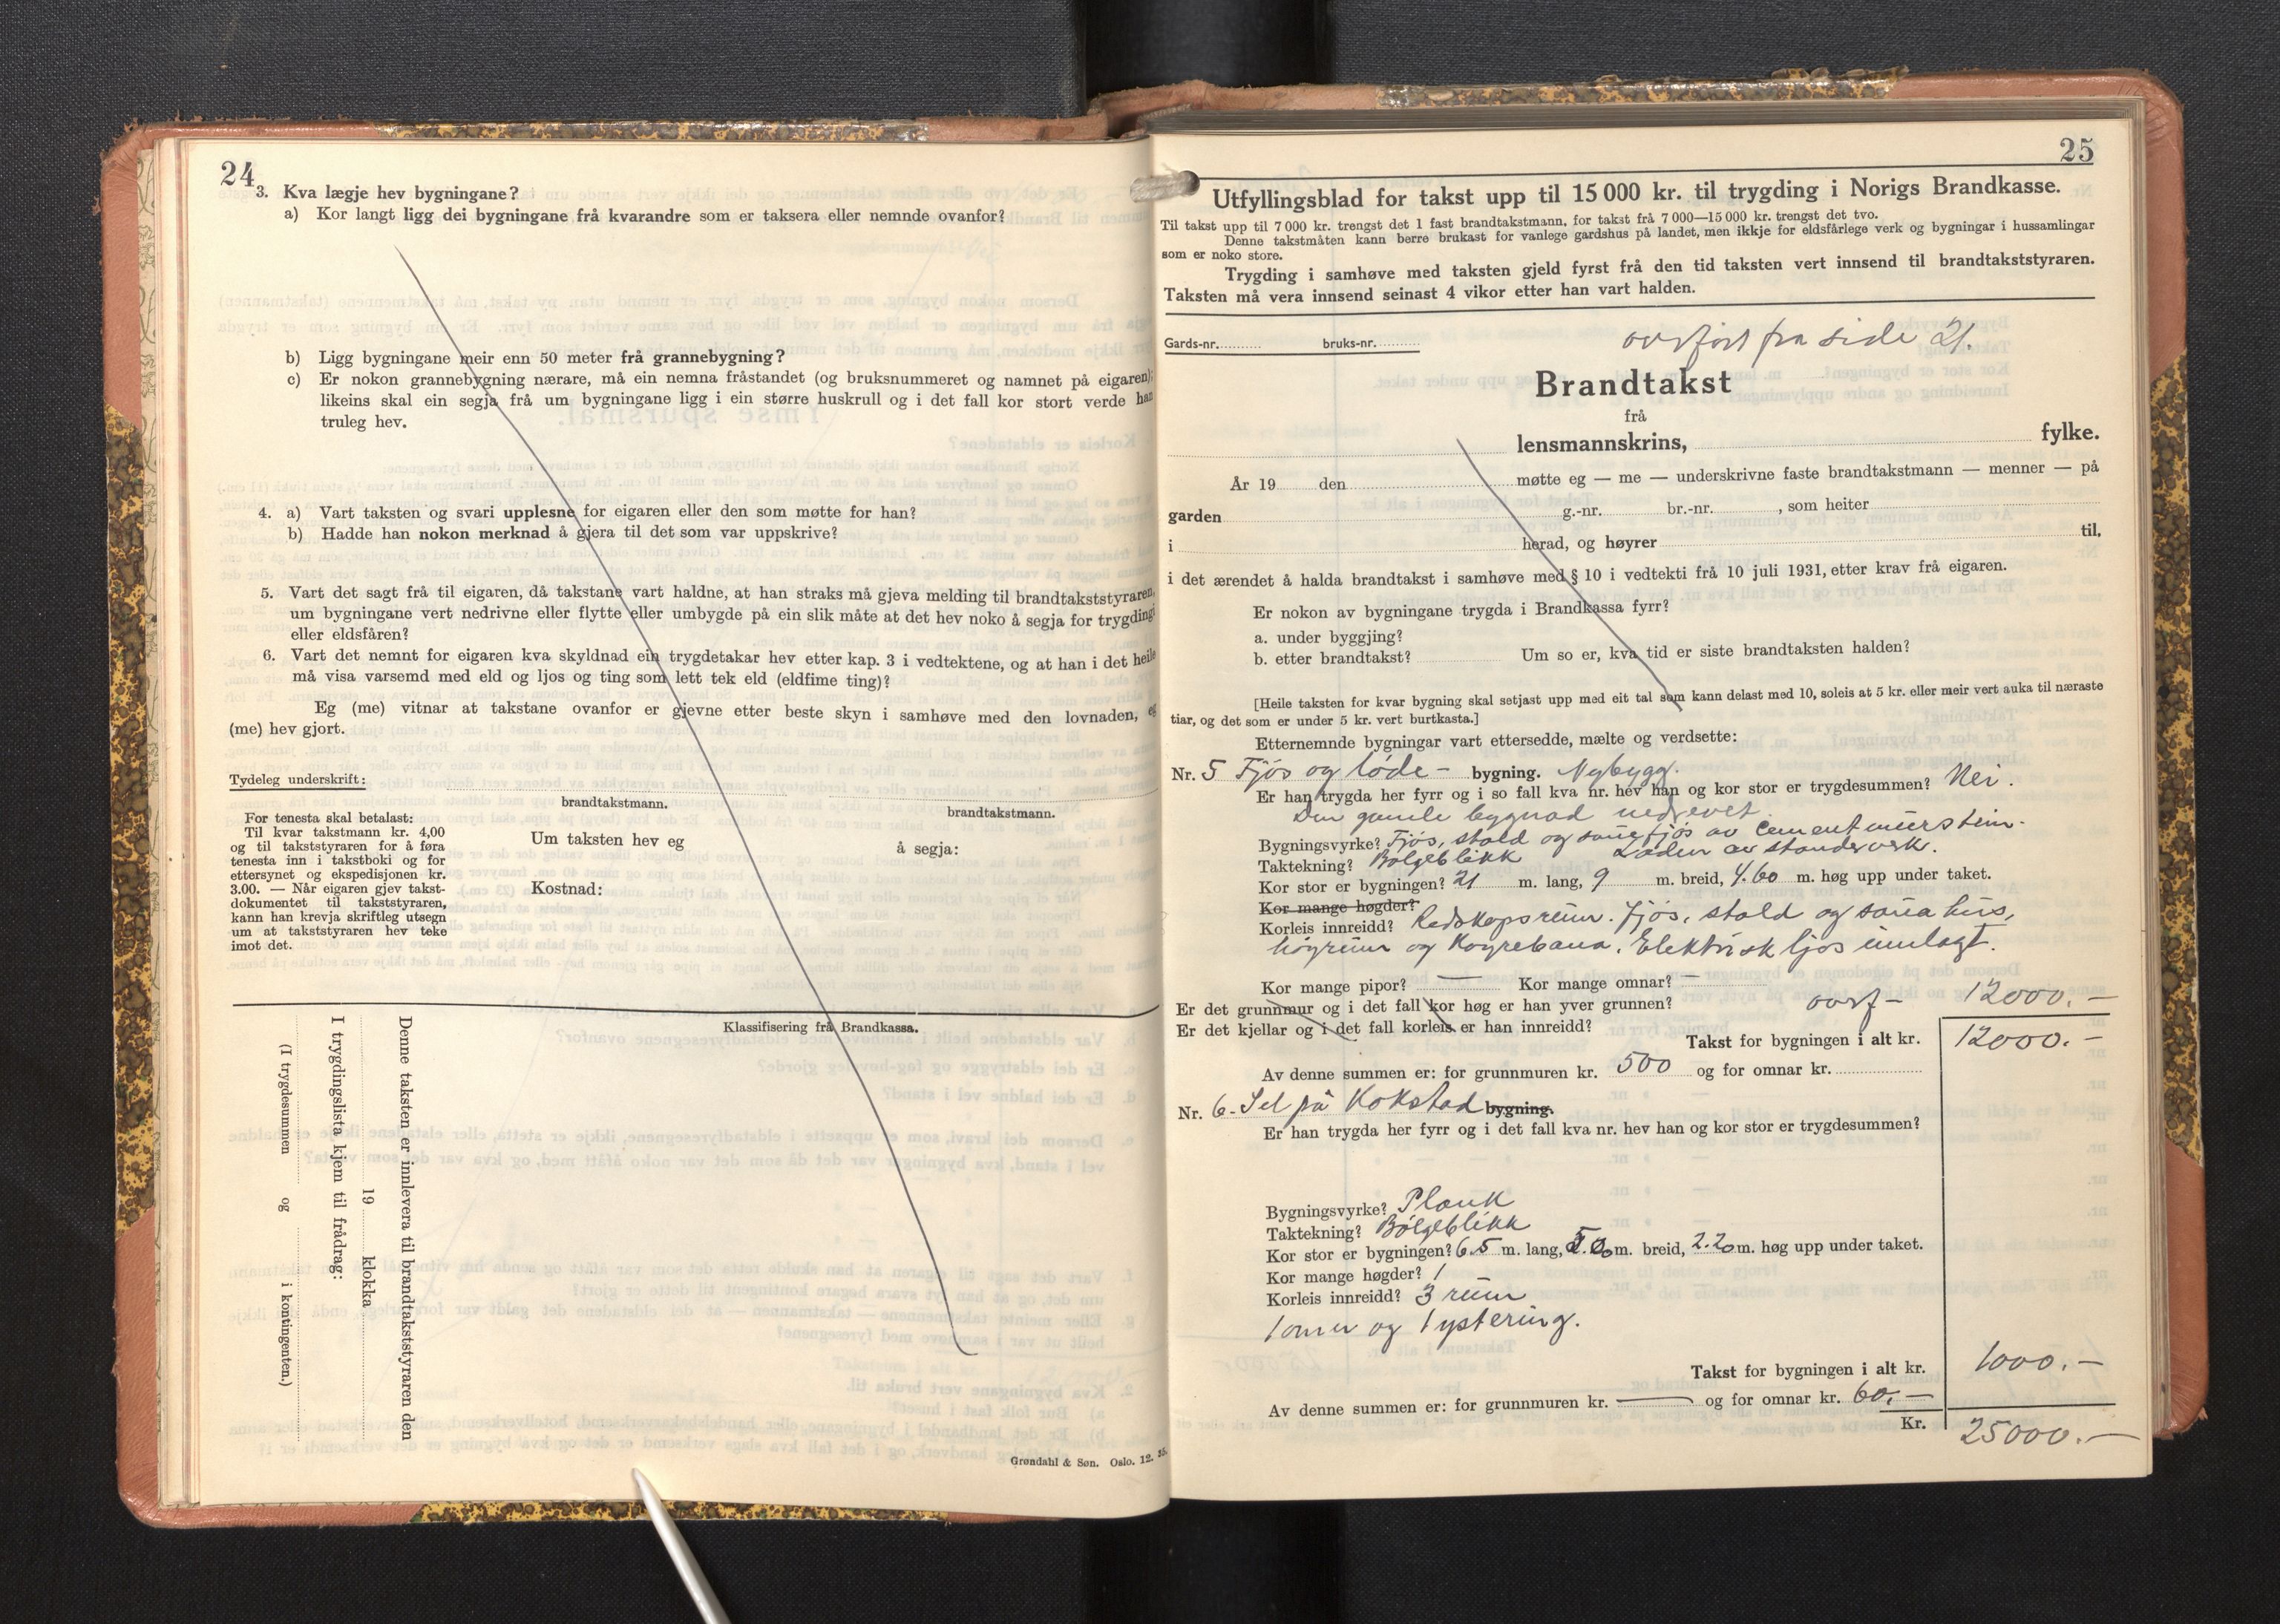 24
3. Kva lægje hev bygningane?
a) Kor langt ligg dei bygningane frå kvarandre som er taksera eller nemnde ovanfor?
b) Ligg bygningane meir enn 50 meter frå grannebygning?
c) Er nokon grannebygning nærare, må ein nemna fråstandet (og bruksnummeret og namnet på eigaren);
likeins skal ein segja frå um bygningane ligg i ein større huskrull og i det fall kor stort verde han
truleg hev.
4. a) Vart taksten og svari upplesne for eigaren eller den som møtte for han?
b) Hadde han nokon merknad å gjera til det som var uppskrive?
5. Vart det sagt frå til eigaren, då takstane vart haldne, at han straks må gjeva melding til brandtakststyraren,
um bygningane vert nedrivne eller flytte eller umbygde på ein slik måte at det hev noko å segja for trygdingi
eller eldsfåren?
6. Vart det nemnt for eigaren kva skyldnad ein trygdetakar hev etter kap. 3 i vedtektene, og at han i det heile
må visa varsemd med eld og ljos og ting som lett tek eld (eldfime ting)?
Eg (me) vitnar at takstane ovanfor er gjevne etter beste skyn i samhøve med den lovnaden, eg
(me) hev gjort.
Tydeleg underskrift:
brandtakstmann.
brandtakstmann.
For tenesta skal betalast:
Til kvar takstmann kr. 4,00
og til takststyraren for å føra
tenesta inn i takstboki og for
ettersynet og ekspedisjonen kr.
3.00. — Når eigaren gjev takst-
dokumentet til takststyraren,
kann han krevja skriftleg utsegn
um at takststyraren hev teke
imot det.
Um taksten hev eg
å segja:
Kostnad:
Klassifisering frå Brandkassa.
Denne taksten er innlevera til brandtakststyraren den
19 klokka
I trygdingslista kjem til frådrag:
(I trygdesummen og i kontingenten.)
Grøndahl & Søn. Oslo. 12. 35.
25
Utfyllingsblad for takst upp til 15 000 kr. til trygding i Norigs Brandkasse.
Til takst upp til 7 000 kr. trengst det 1 fast brandtakstmann, for takst frå 7 000—15 000 kr. trengst det tvo.
Denne takstmåten kann berre brukast for vanlege gardshus på landet, men ikkje for eldsfårlege verk og bygningar i hussamlingar
som er noko store.
Trygding i samhøve med taksten gjeld fyrst frå den tid taksten vert innsend til brandtakststyraren.
Taksten må vera innsend seinast 4 vikor etter han vart halden.
Gards-nr. bruks-nr.
overført fra side 21.
Brandtakst
frå
lensmannskrins, fylke.
År 19 den møtte eg — me — underskrivne faste brandtakstmann — menner — på
garden g.-nr. br.-nr. , som heiter
i herad, og høyrer til,
i det ærendet å halda brandtakst i samhøve med § 10 i vedtekti frå 10 juli 1931, etter krav frå eigaren.
Er nokon av bygningane trygda i Brandkassa fyrr?
a. under byggjing?
b. etter brandtakst? Um so er, kva tid er siste brandtaksten halden?
[Heile taksten for kvar bygning skal setjast upp med eit tal som kann delast med 10, soleis at 5 kr. eller meir vert auka til næraste
tiar, og det som er under 5 kr. vert burtkasta.]
Etternemnde bygningar vart ettersedde, mælte og verdsette:
Nr. 5 Fjøs og løde - bygning. Nybygg.
Er han trygda her fyrr og i so fall kva nr. hev han og kor stor er trygdesummen? Nei.
Den gamle bygnad nedrevet.
Bygningsvyrke? Fjøs, stald og sauefjøs av cementmurstein.
Taktekning? Bølgeblikk Løden av standerverk.
Kor stor er bygningen? 21 m. lang, 9 m. breid, 4.60 m. høg upp under taket.
Kor mange høgder?
Korleis innreidd? Redskapsrum. Fjøs, stald og saua hus,
høyrum og Køyrebana. Elektrisk ljos innlagt.
Kor mange pipor? — Kor mange omnar? —
Er det grunnmur og i det fall kor høg er han yver grunnen? overf - 12000.-
Er det kjellar og i det fall korleis er han innreidd?
Takst for bygningen i alt kr. 12000.-
Av denne summen er: for grunnmuren kr. 500 og for omnar kr.
Nr. 6 - Sel på Kokstad bygning.
Er han trygda her fyrr og i det fall kva nr. hev han og kor stor er trygdesummen?
Bygningsvyrke? Plank
Taktekning? Bølgeblikk
Kor stor er bygningen? 6.5 m. lang, m. breid, 2.20 m. høg upp under taket.
Kor mange høgder? 1
Korleis innreidd? 3 rum
1 omn og 1 ystering.
Takst for bygningen i alt kr. 1000.-
Av denne summen er: for grunnmuren kr. — og for omnar kr. 60.-
Kr. 25000.-